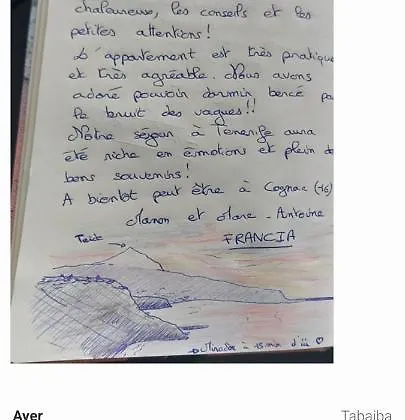 chaleureux, les conseils et les
petites attentions!
L'appartement est très pratique
et très agréable. Nous avons
adoré pouvoir dormir bercé pa
le bruit des vagues!!
Notre séjour à Tenerife aura
été riche en émotions et plein de
bons souvenirs!
A bientôt peut être à Cognac (16)
Manon et Marc-Antoine
FRANCIA
Teide
Mirador à 15 min d'ici
Ayer
Tabaiba